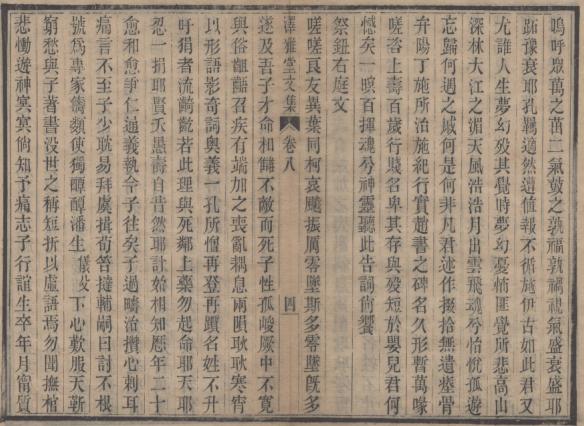 嗚呼眾萬之苗二氣鼓之孰福孰禍視氣盛衰盛耶
跖豫衰耶孔羈適然遺值報不循施伊古如此君又
尤誰人生夢幻歿其覺時夢幻憂悄匪覺所悲高山
深林大江之湄天風浩浩月出雲飛魂兮怡悅孤遊
忘歸何遇之戚何是何非凡君述作掇拾無遺瘞骨
弁陽丁施所治施紀行實趙書之碑名久形暫萬喙
嗟咨上壽百歲行賤名卑其存與歿短於嬰兒君何
憾矣一暝百揮魂兮神靈聽此告詞尚饗
祭鈕右庭文
澤雅堂文集 卷八 四
嗟嗟良友異葉同柯哀飈振厲零墜斯多零墜旣多
遂及吾子才命相讎不敵而死子性孤峻厥中不寬
與俗齟齬召疾有端加之喪亂耦息兩隕耿耿寒宵
以形語影奇詞奧義一孔所憎再登再躓名姓不升
吁狷者流齲齔若此理與死鄰上藥勿起命耶天耶
忍一捐耶賢夭愚壽自昔然耶計始相知歷年二十
愈和愈爭仁通義執令子往矣子過疇治攢心刺耳
痛言不至子少耽易拜虞揖荀笞撻輔嗣曰討不根
號爲專家儔類使獨醰醰潘生儀/small>攷下心歎服天靳
窮愁與子著書沒世之稱短折以虛語焉勿聞撫棺
悲慟遊神冥冥倘知予痛志子行誼生卒年月甯質